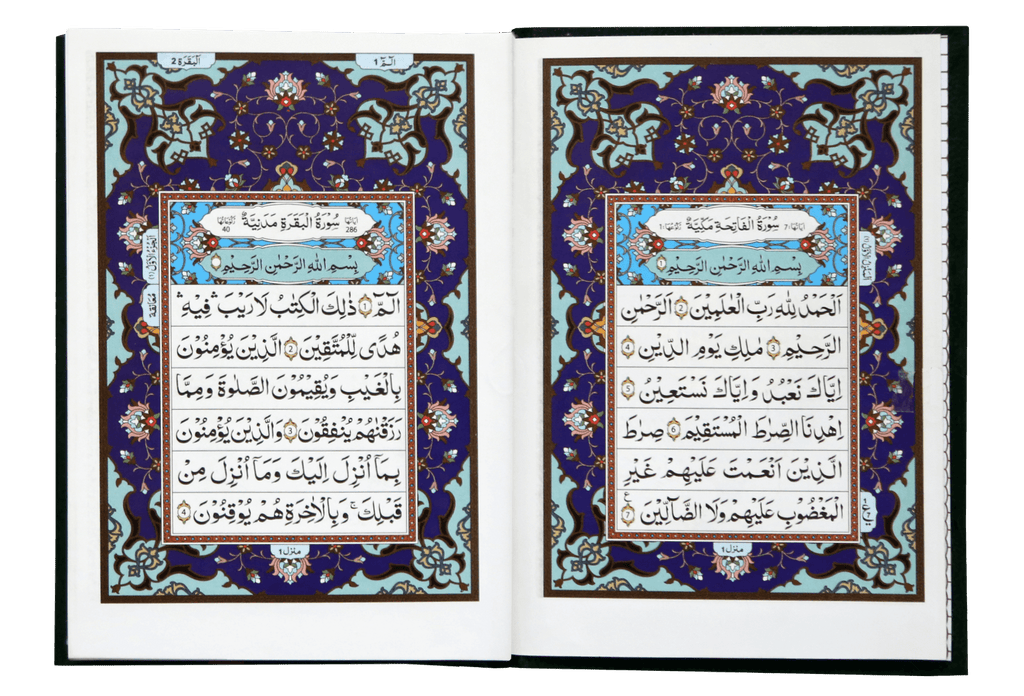 اٰيَاتُهَا 7
سُوْرَةُ الْفَاتِحَةِ مَكِّيَّةٌ
رُكُوْعُهَا 1
بِسْمِ اللّٰهِ الرَّحْمٰنِ الرَّحِيْمِ 1
اَلْحَمْدُ لِلّٰهِ رَبِّ الْعٰلَمِيْنَ 2 الرَّحْمٰنِ
الرَّحِيْمِ 3 مٰلِكِ يَوْمِ الدِّيْنِ 4
اِيَّاكَ نَعْبُدُ وَاِيَّاكَ نَسْتَعِيْنُ 5
اِهْدِنَا الصِّرَاطَ الْمُسْتَقِيْمَ 6 صِرَاطَ
الَّذِيْنَ اَنْعَمْتَ عَلَيْهِمْ غَيْرِ
الْمَغْضُوْبِ عَلَيْهِمْ وَلَا الضَّآلِّيْنَ 7
ع
منزل ١
الٓمّٓ 1
اَلْبَقَرَة 2
اٰيَاتُهَا 286
سُوْرَةُ الْبَقَرَةِ مَدَنِيَّةٌ
رُكُوْعَاتُهَا 40
بِسْمِ اللّٰهِ الرَّحْمٰنِ الرَّحِيْمِ
الٓمّٓ 1 ذٰلِكَ الْكِتٰبُ لَا رَيْبَ ۛ فِيْهِ ۛ
هُدًى لِّلْمُتَّقِيْنَ 2 الَّذِيْنَ يُؤْمِنُوْنَ
بِالْغَيْبِ وَيُقِيْمُوْنَ الصَّلٰوةَ وَمِمَّا
رَزَقْنٰهُمْ يُنْفِقُوْنَ 3 وَالَّذِيْنَ يُؤْمِنُوْنَ
بِمَآ اُنْزِلَ اِلَيْكَ وَمَآ اُنْزِلَ مِنْ
قَبْلِكَ ۚ وَبِالْاٰخِرَةِ هُمْ يُوْقِنُوْنَ 4
الجزء الاول (١)
معانقة
منزل ١